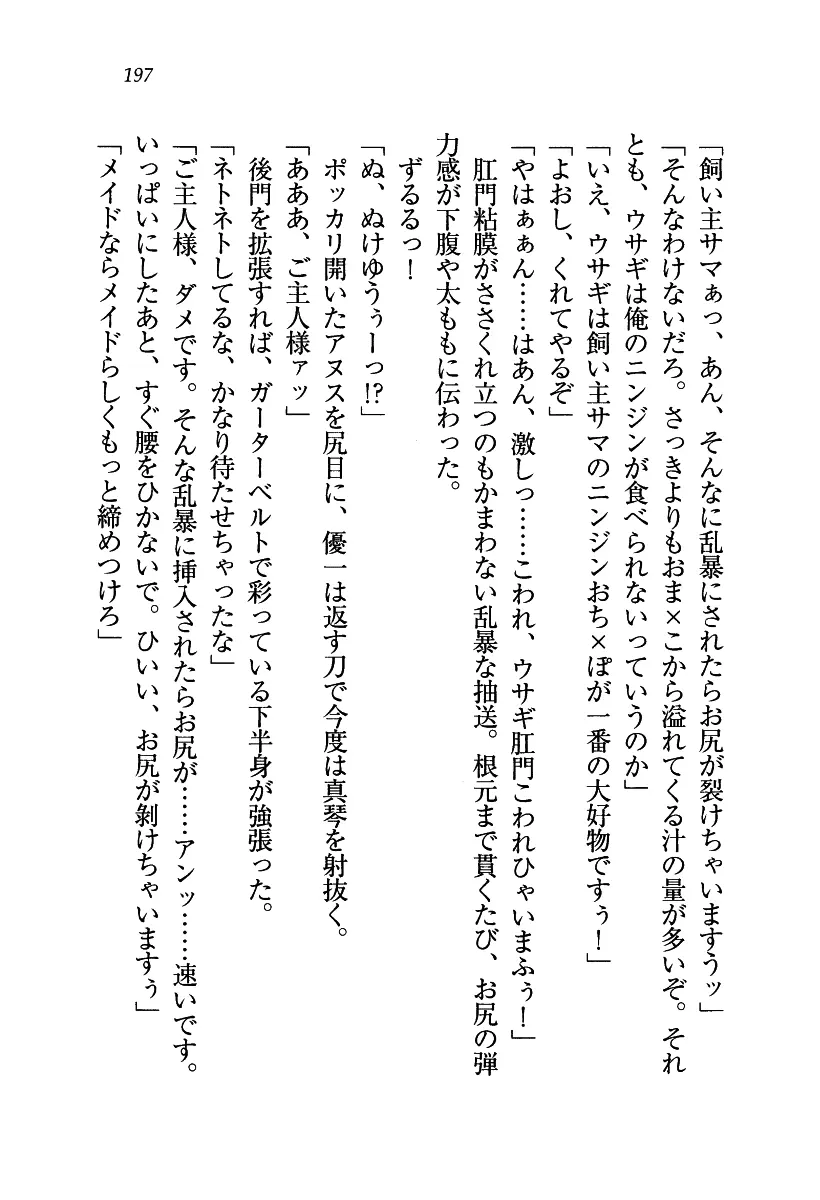 197
「飼い主サマぁっ、あん、そんなに乱暴にされたらお尻が裂けちゃいますうッ」
「そんなわけないだろ。さっきよりもおま×こから溢れてくる汁の量が多いぞ。それ
とも、ウサギは俺のニンジンが食べられないっていうのか」
「いえ、ウサギは飼い主サマのニンジンおち×ぽが一番の大好物ですぅ！」
「よおし、くれてやるぞ」
「やはぁぁん……はあん、激しっ……こわれ、ウサギ肛門こわれひゃいまふぅ！」
肛門粘膜がささくれ立つのもかまわない乱暴な抽送。根元まで貫くたび、お尻の弾
力感が下腹や太ももに伝わった。
ずるるっ！
「ぬ、ぬけゆうぅーっ!?」
ポッカリ開いたアヌスを尻目に、優一は返す刀で今度は真琴を射抜く。
「あああ、ご主人様ァッ」
後門を拡張すれば、ガーターベルトで彩っている下半身が強張った。
「ネトネトしてるな、かなり待たせちゃったな」
「ご主人様、ダメです。そんな乱暴に挿入されたらお尻が……アンッ……速いです。
いっぱいにしたあと、すぐ腰をひかないで。ひいい、お尻が剝けちゃいますぅ」
「メイドならメイドらしくもっと締めつけろ」